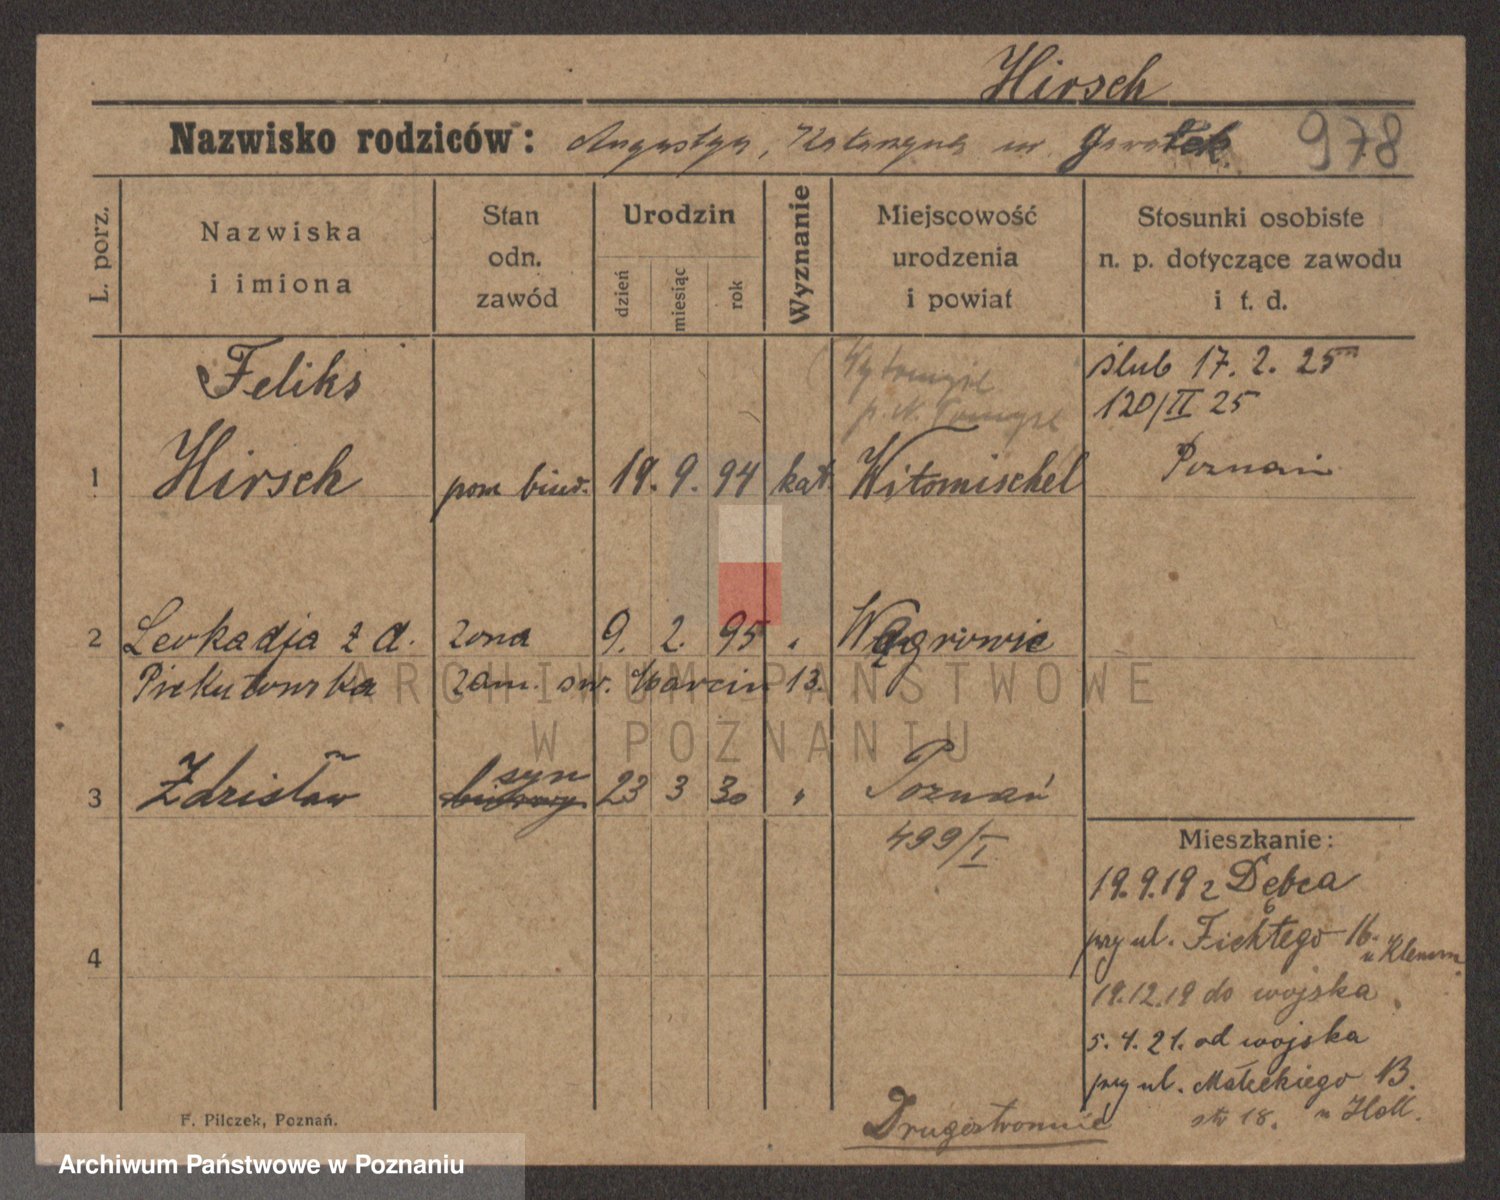 Hirsch
Nazwisko rodziców: Augustyn, Katarzyna 978
L. porz.
Nazwiska i imiona
Stan odn. zawód
Urodzin
dzień
miesiąc
rok
Wyznanie
Miejscowość urodzenia i powiat
Stosunki osobiste n. p. dotyczące zawodu i t. d.
Feliks
Wytomyśl
p. N. Tomyśl
ślub 17. 2. 25
120/II 25
1 Hirsch pom biur. 19. 9. 94 kat. Witomischel
Poznań
2 Leokadja z d. żona 9. 2. 95 " Wągrowiec
Piekutowska zam. św. Marcin 13.
syn
3 Zdzisław 23 3 30 " Poznań
499/I
Mieszkanie:
19.9.19 z Dębca
4
przy ul. Fichtego 16.
19.12.19 do wojska
5. 4. 21. od wojska
przy ul. Małeckiego 13.
Drugostronnie
F. Pilczek, Poznań.
ARCHIWUM PAŃSTWOWE
W POZNANIU
Archiwum Państwowe w Poznaniu